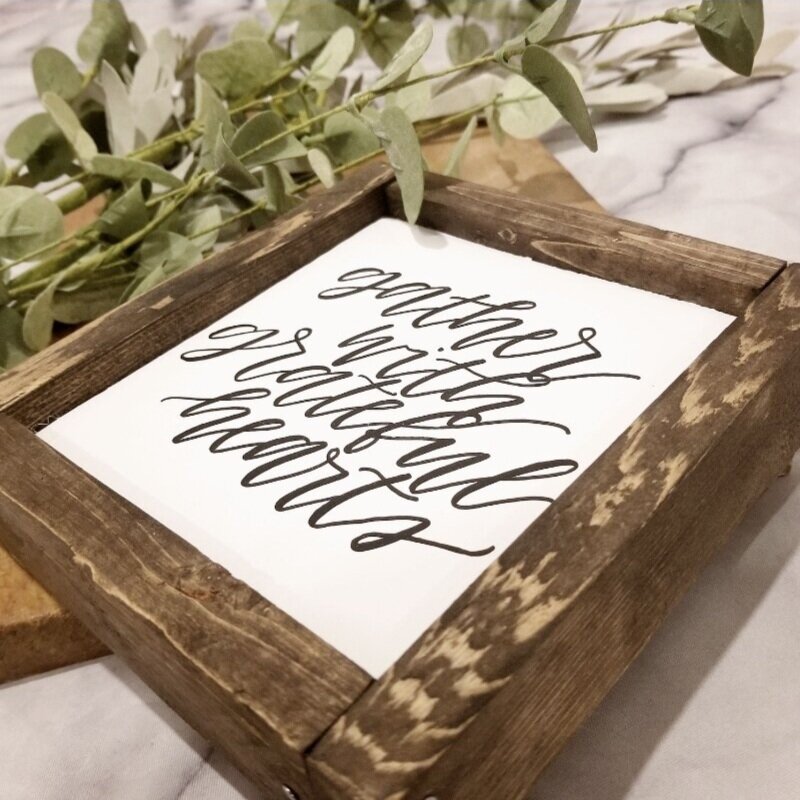 gather
with
grateful
hearts